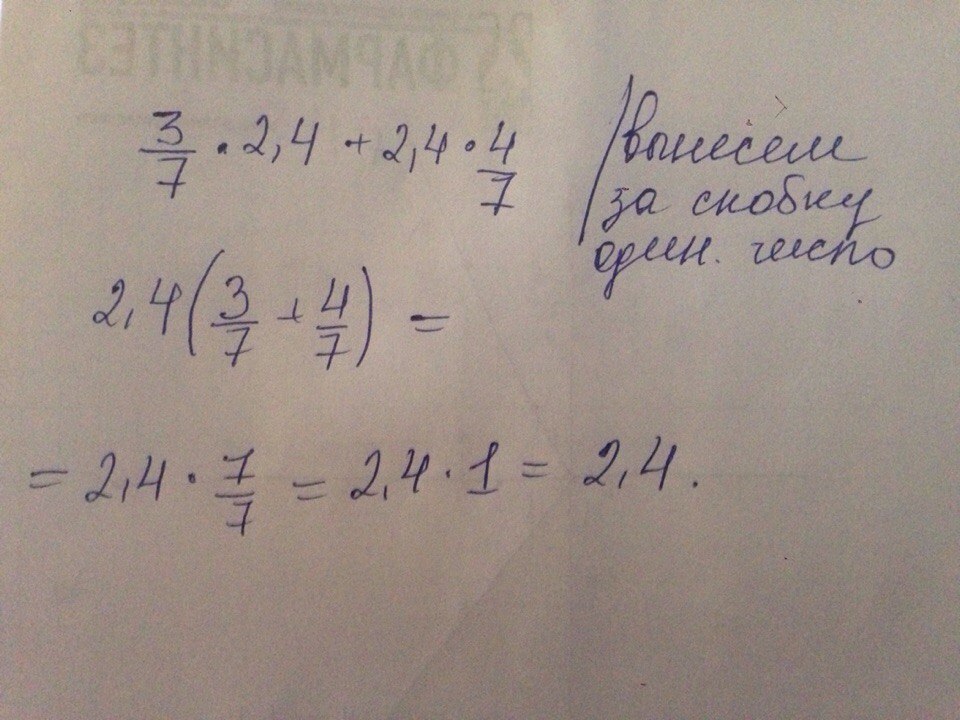 ФАРМАСИНТЕЗ
3/7 · 2,4 + 2,4 · 4/7
/ вынесем
за скобку
один. число
2,4(3/7 + 4/7) =
= 2,4 · 7/7 = 2,4 · 1 = 2,4.